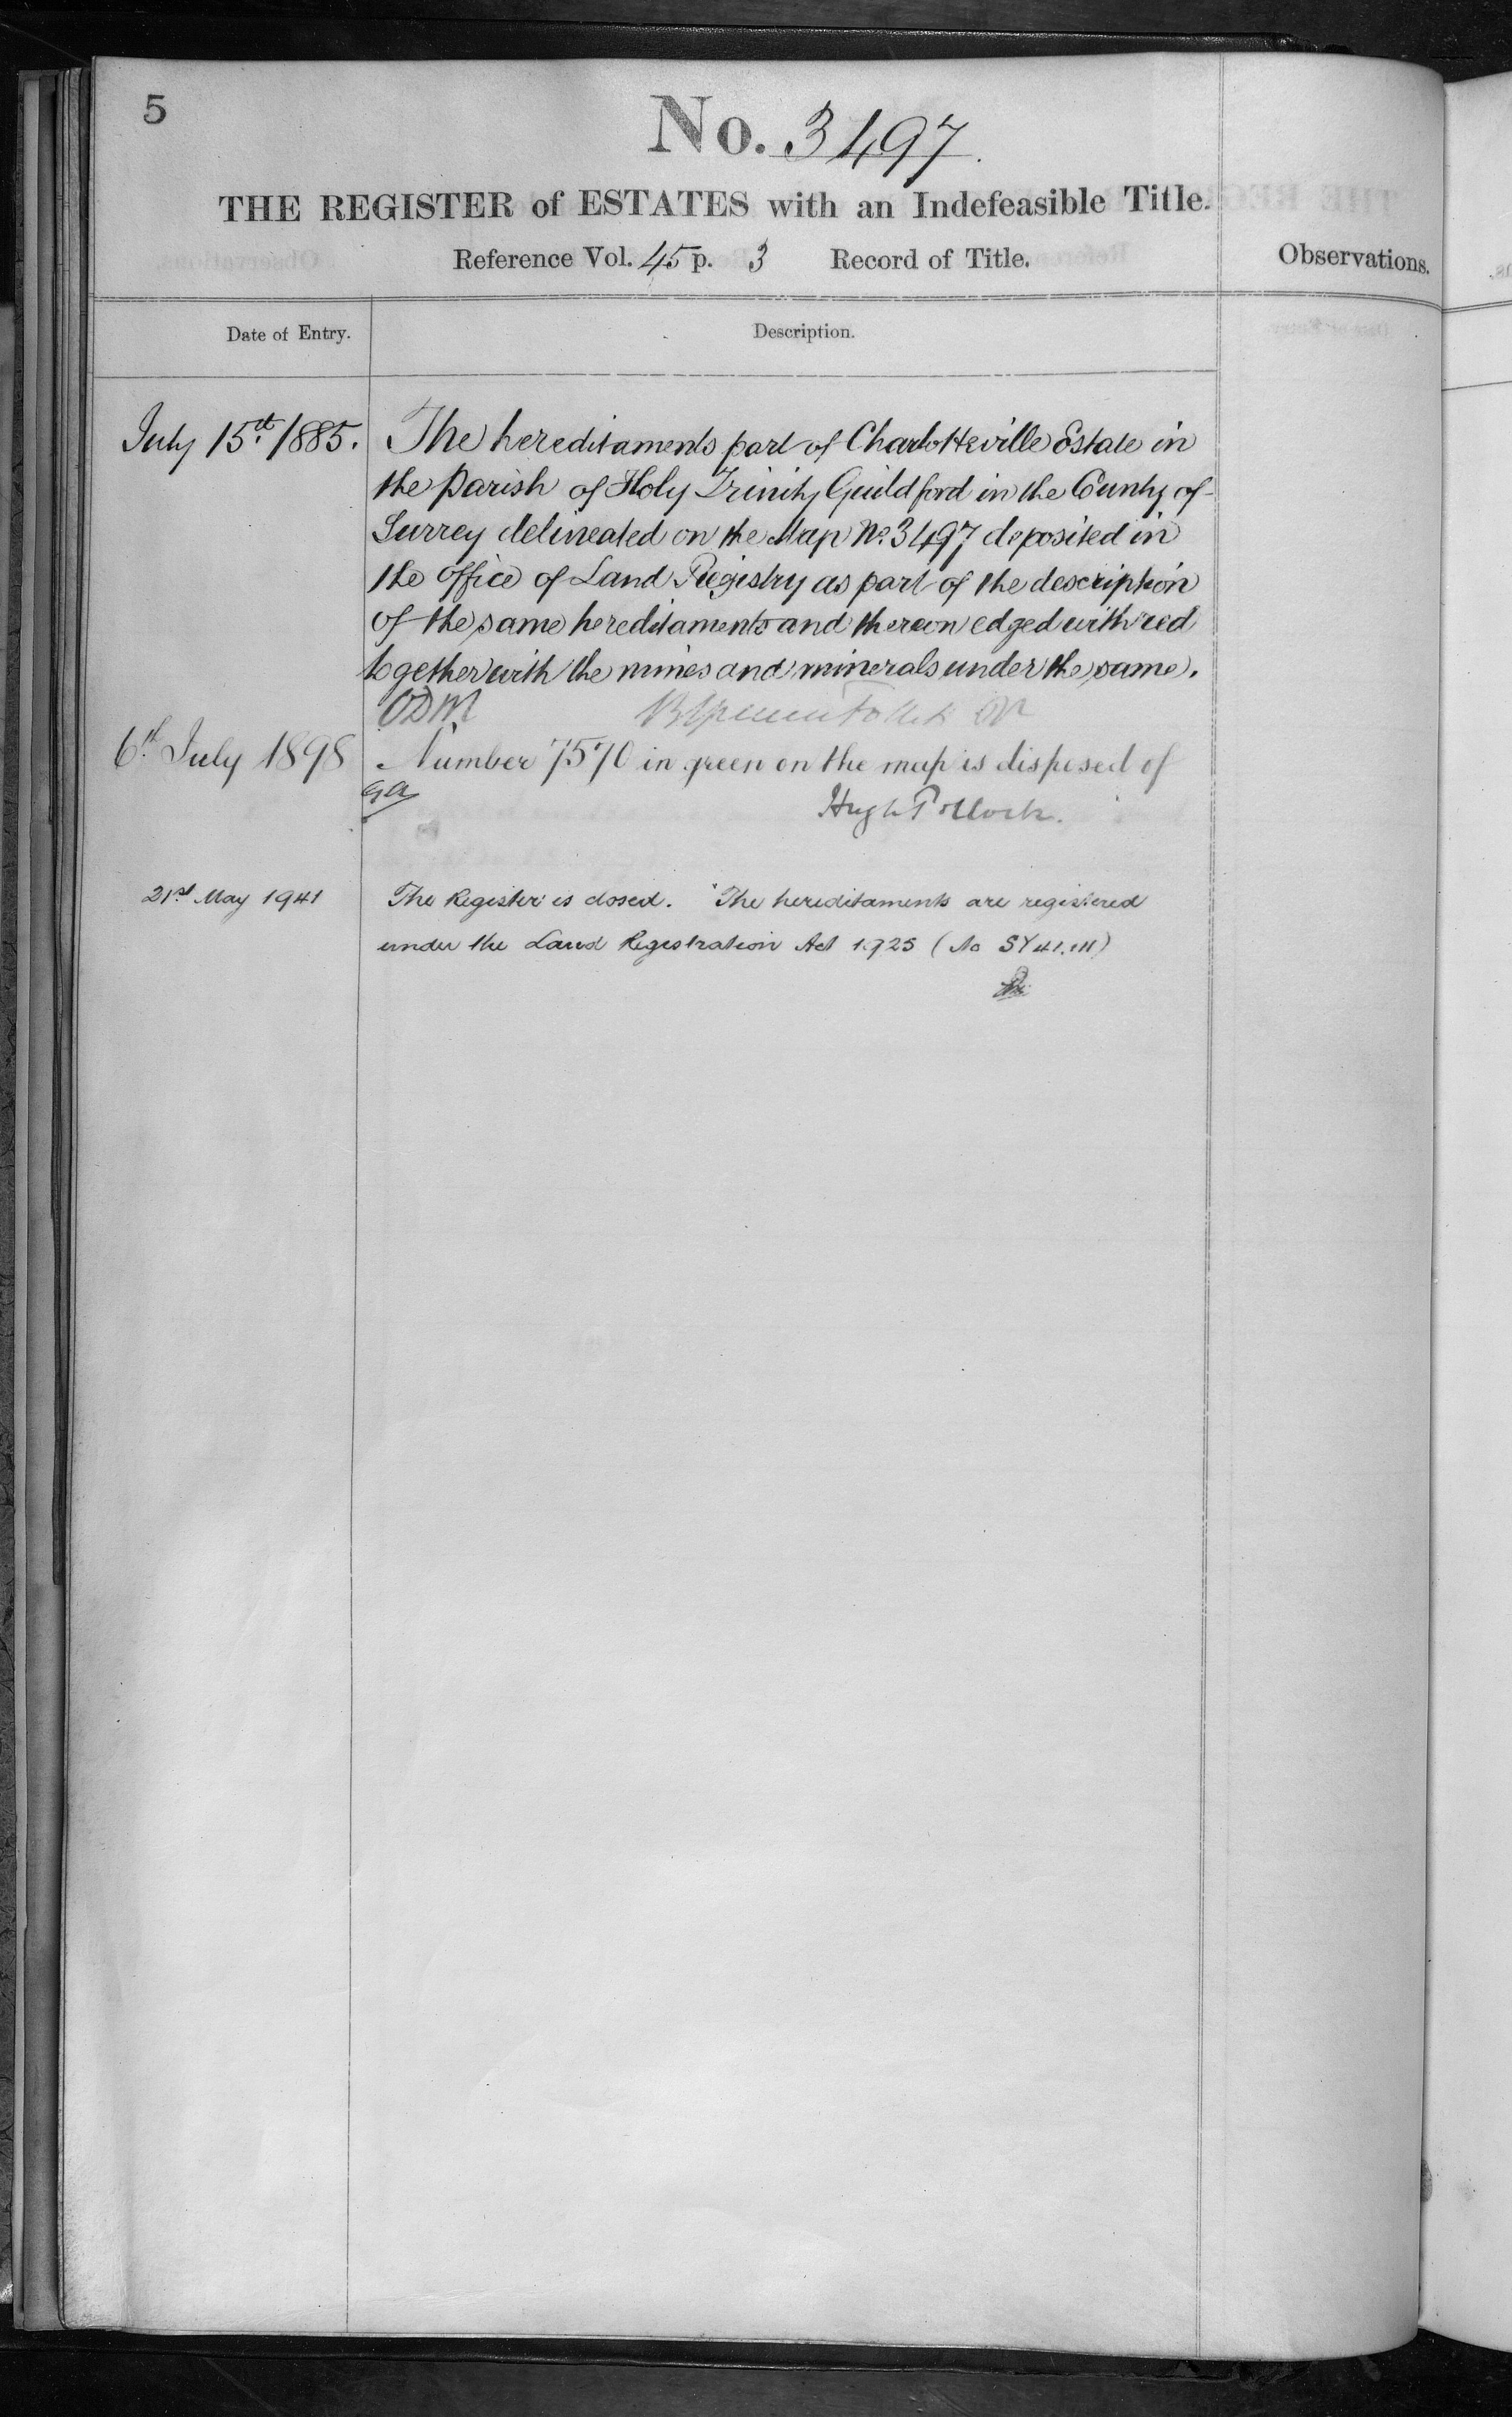 5
No. 3497.
THE REGISTER of ESTATES with an Indefeasible Title.
Reference Vol. 45 p. 3 Record of Title.
Observations.
Date of Entry.
Description.
July 15th 1885.
The hereditaments part of Charlotteville Estate in
the parish of Holy Trinity Guildford in the County of
Surrey delineated on the Map No. 3497 deposited in
the office of Land Registry as part of the description
of the same hereditaments and thereon edged with red
together with the mines and minerals under the same.
ODM
6th July 1898
Number 7570 in green on the map is disposed of
Hugh Pollock.
21st May 1941
The Register is closed. The hereditaments are registered
under the Land Registration Act 1925 (No SY 41.111)